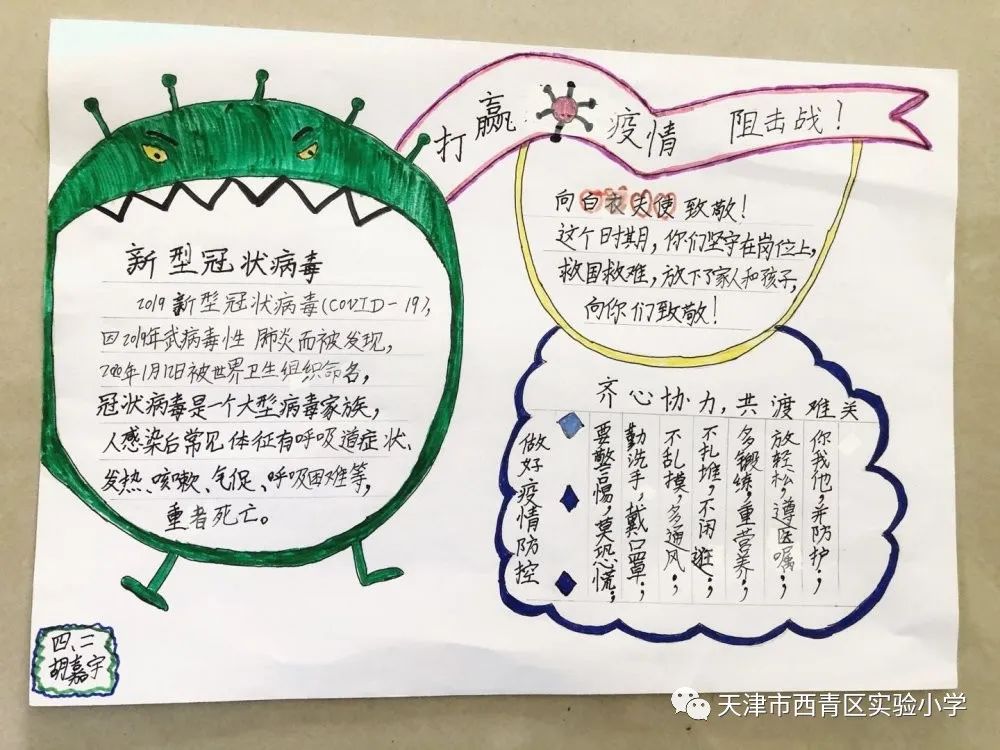 打赢疫情阻击战！
新型冠状病毒
2019新型冠状病毒(COVID-19),
因2019年武病毒性肺炎而被发现,
2020年1月12日被世界卫生组织命名,
冠状病毒是一个大型病毒家族,
人感染后常见体征有呼吸道症状、
发热、咳嗽、气促、呼吸困难等,
重者死亡。
向白衣天使致敬！
这个时期,你们坚守在岗位上,
救国救难,放下了家人和孩子,
向你们致敬！
齐心协力,共渡难关
做好疫情防控
要警惕,莫恐慌;
勤洗手,戴口罩;
不乱摸,多通风;
不扎堆,不闲逛;
多锻练,重营养;
放轻松,遵医嘱;
你我他,并防护;
四、二
胡嘉宇
天津市西青区实验小学